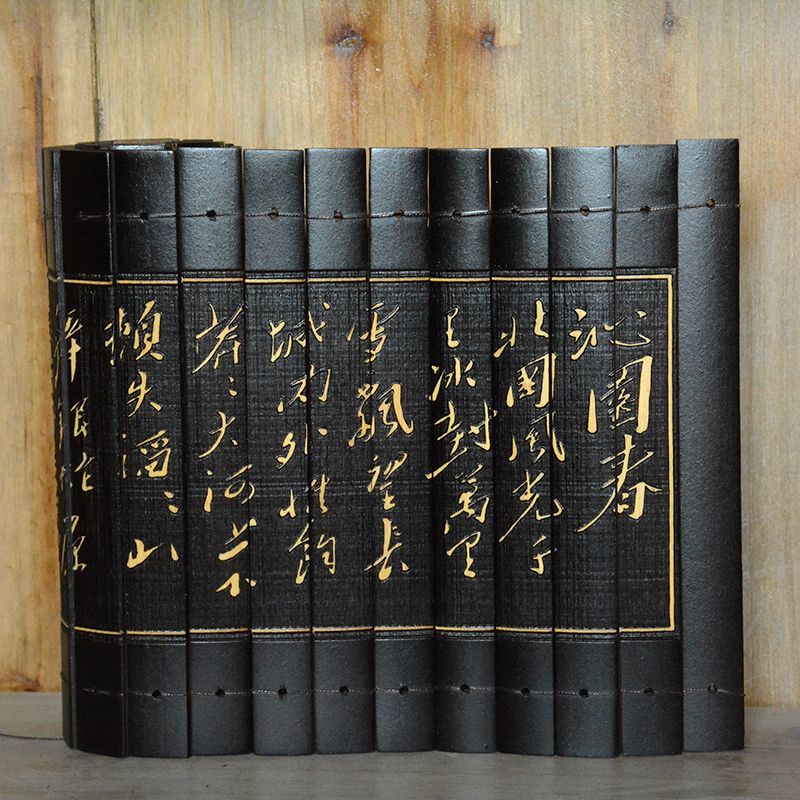 沁園春
北國風光千
里冰封萬里
雪飄望長
城内外惟餘
莽〻大河上下
頓失滔〻山
舞銀蛇原